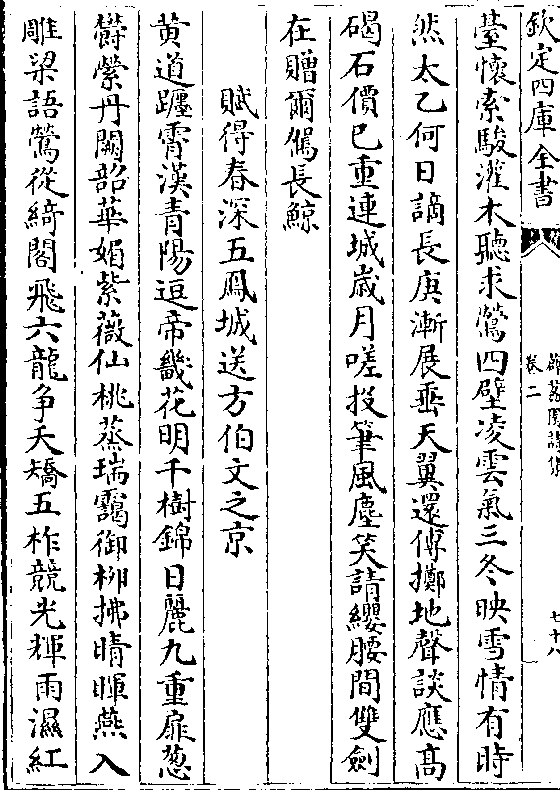 欽定四庫全書
卷二
臺懷索駿灌木聽求鶯四壁凌雲氣三冬映雪情有時
然太乙何日謫長庚漸展垂天翼還傳擲地聲談應高
碣石價已重連城歲月嗟投筆風塵笑請纓腰間雙劍
在贈爾鳬長鯨
賦得春深五鳳城送方伯文之京
黃道躔霄漢青陽逗帝畿花明千樹錦日麗九重扉葱
欝縈丹闕韶華媚紫薇仙桃蒸瑞靄御柳拂晴暉燕入
雕梁語鶯從綺閣飛六龍争夭矯五柞競光輝雨濕紅